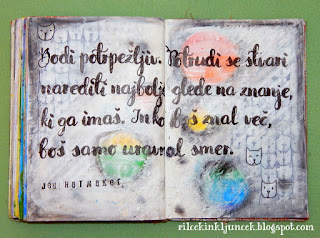 Bodi potrpežljiv. Potrudi se stvari
narediti najbolje glede na znanje,
ki ga imaš. In ko boš znal več,
boš samo uravnal smer.
JON HOTNAKER,
rilcekinkljuncek.blogspot.com